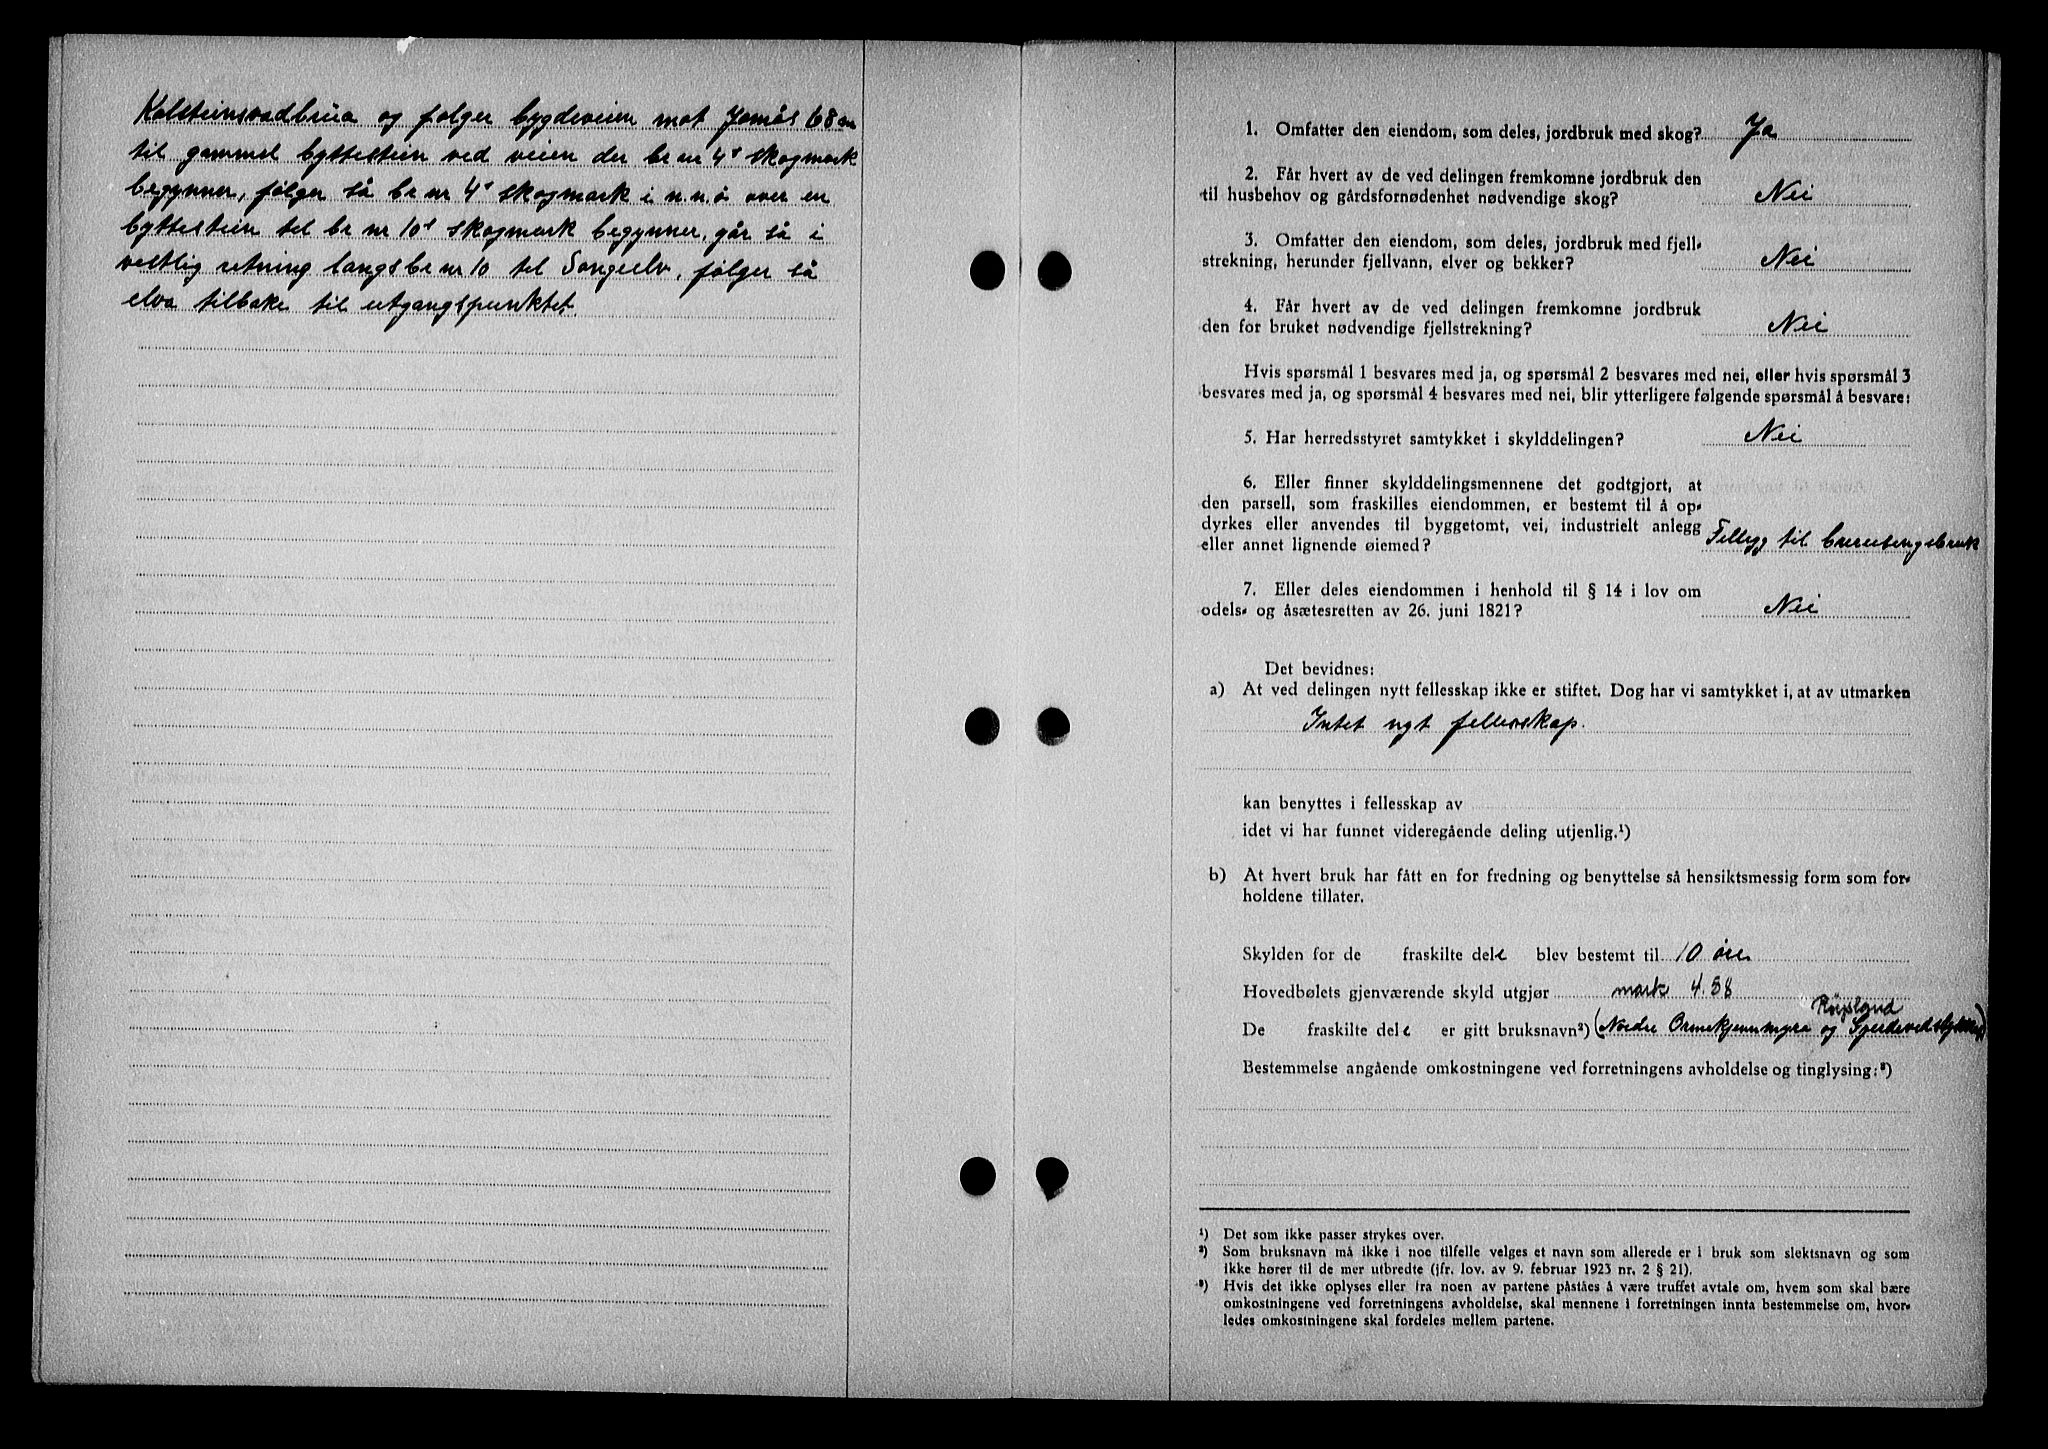 Kolsteinsvadbrua og følger bygdeveien mot Jomås 68 m
til gammel byttestein ved veien der br nr 4s skogmark
begynner, følger så br nr 4s skogmark i n.n.ø over en
byttestein til br nr 10s skogmark begynner, går så i
vestlig retning langs br nr 10 til Songeelv, følger så
elva tilbake til utgangspunktet.
1. Omfatter den eiendom, som deles, jordbruk med skog? Ja
2. Får hvert av de ved delingen fremkomne jordbruk den
til husbehov og gårdsfornødenhet nødvendige skog? Nei
3. Omfatter den eiendom, som deles, jordbruk med fjell-
strekning, herunder fjellvann, elver og bekker? Nei
4. Får hvert av de ved delingen fremkomne jordbruk
den for bruket nødvendige fjellstrekning? Nei
Hvis spørsmål 1 besvares med ja, og spørsmål 2 besvares med nei, eller hvis spørsmål 3
besvares med ja, og spørsmål 4 besvares med nei, blir ytterligere følgende spørsmål å besvare:
5. Har herredsstyret samtykket i skylddelingen? Nei
6. Eller finner skylddelingsmennene det godtgjort, at
den parsell, som fraskilles eiendommen, er bestemt til å op-
dyrkes eller anvendes til byggetomt, vei, industrielt anlegg
eller annet lignende øiemed? Tillegg til
7. Eller deles eiendommen i henhold til § 14 i lov om
odels- og åsætesretten av 26. juni 1821? Nei
Det bevidnes:
a) At ved delingen nytt fellesskap ikke er stiftet. Dog har vi samtykket i, at av utmarken
Intet nyt fellesskap.
kan benyttes i fellesskap av
idet vi har funnet videregående deling utjenlig.¹)
b) At hvert bruk har fått en for fredning og benyttelse så hensiktsmessig form som for-
holdene tillater.
Skylden for de fraskilte dele blev bestemt til 10 øre
Hovedbølets gjenværende skyld utgjør mark 4.58
Røysland
De fraskilte dele er gitt bruksnavn²) (Nordre Ormekjennmyra og
Bestemmelse angående omkostningene ved forretningens avholdelse og tinglysing:³)
¹) Det som ikke passer strykes over.
²) Som bruksnavn må ikke i noe tilfelle velges et navn som allerede er i bruk som slektsnavn og som
ikke hører til de mer utbredte (jfr. lov. av 9. februar 1923 nr. 2 § 21).
³) Hvis det ikke oplyses eller fra noen av partene påståes å være truffet avtale om, hvem som skal bære
omkostningene ved forretningens avholdelse, skal mennene i forretningen innta bestemmelse om, hvor-
ledes omkostningene skal fordeles mellem partene.